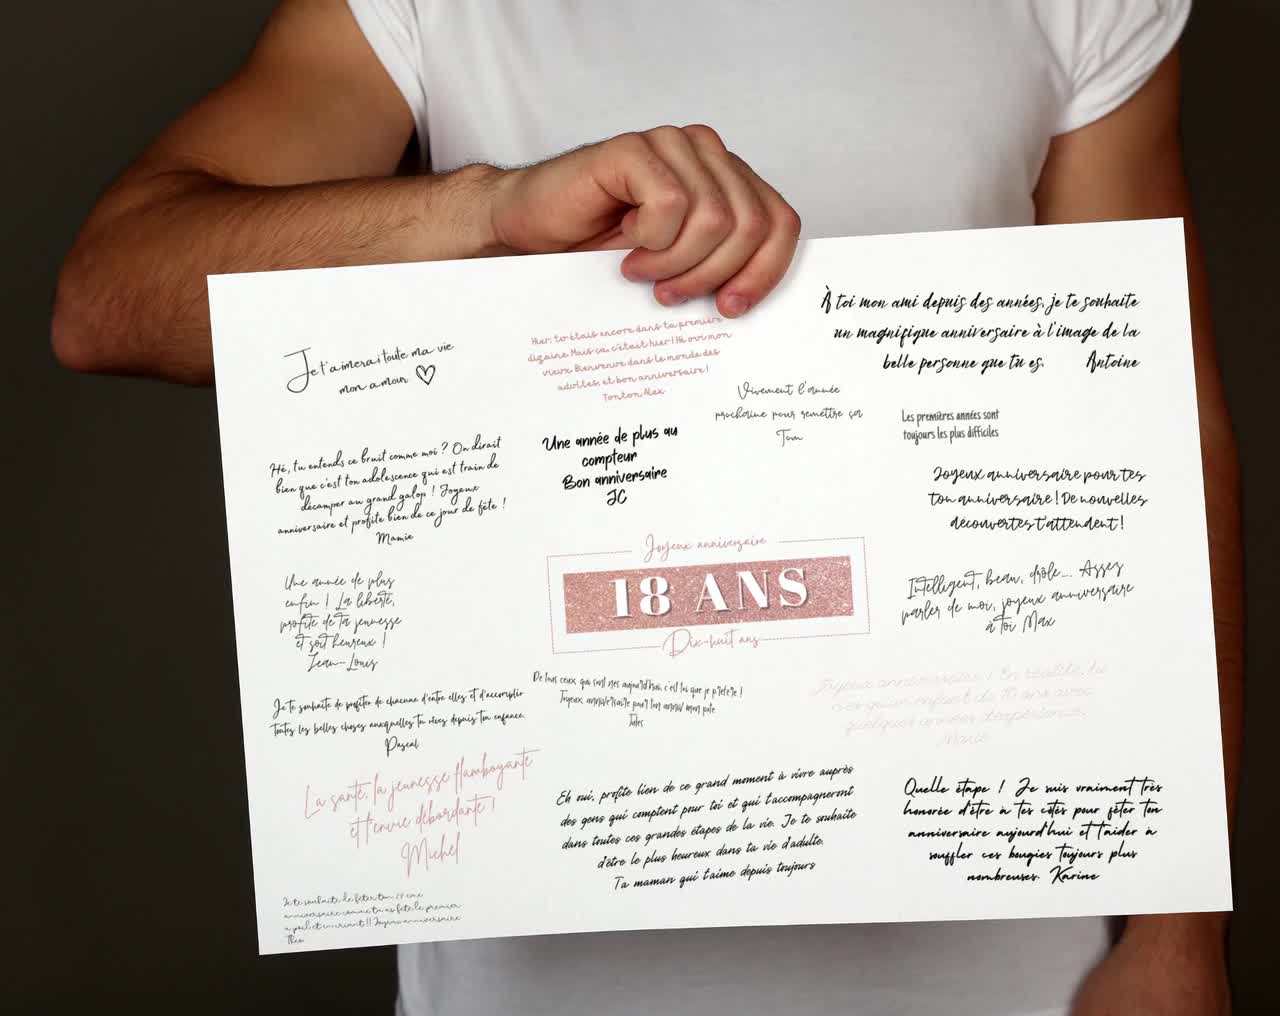 Je t'aimerai toute ma vie
mon amour
Hier, tu étais encore dans ta première
dizaine. Mais ça, c'était hier ! Hé oui mon
vieux. Bienvenue dans le monde des
adultes, et bon anniversaire !
Tonton Alex
À toi mon ami depuis des années, je te souhaite
un magnifique anniversaire à l'image de la
belle personne que tu es. Antoine
Vivement l'année
prochaine pour remettre ça
Tom
Les premières années sont
toujours les plus difficiles
Hé, tu entends ce bruit comme moi ? On dirait
bien que c'est ton adolescence qui est train de
décamper au grand galop ! Joyeux
anniversaire et profite bien de ce jour de fête !
Mamie
Une année de plus au
compteur
Bon anniversaire
JC
Joyeux anniversaire pour tes
ton anniversaire ! De nouvelles
découvertes t'attendent !
Joyeux anniversaire
18 ANS
Dix-huit ans
Une année de plus
enfin ! La liberté,
profite de ta jeunesse
et soit heureux !
Jean-Louis
Intelligent, beau, drôle.... Assez
parler de moi, joyeux anniversaire
à toi Max
Je te souhaite de profiter de chacune d'entre elles et d'accomplir
toutes les belles choses auxquelles tu rêves depuis ton enfance.
Pascal
De tous ceux qui sont nés aujourd'hui, c'est toi que je préfère !
Joyeux anniversaire pour ton anniv mon pote
Jules
Joyeux anniversaire ! En réalité, tu
n'es qu'un enfant de 10 ans avec
quelques années d'expérience.
Marie
La santé, la jeunesse flamboyante
et l'envie débordante !
Michel
Eh oui, profite bien de ce grand moment à vivre auprès
des gens qui comptent pour toi et qui t'accompagneront
dans toutes ces grandes étapes de la vie. Je te souhaite
d'être le plus heureux dans ta vie d'adulte.
Ta maman qui t'aime depuis toujours
Quelle étape ! Je suis vraiment très
honorée d'être à tes côtés pour fêter ton
anniversaire aujourd'hui et t'aider à
souffler ces bougies toujours plus
nombreuses. Karine
Je te souhaite de fêter ton ème
anniversaire comme tu as fêté le premier
à poil et en criant !! Joyeux anniversaire
Théo